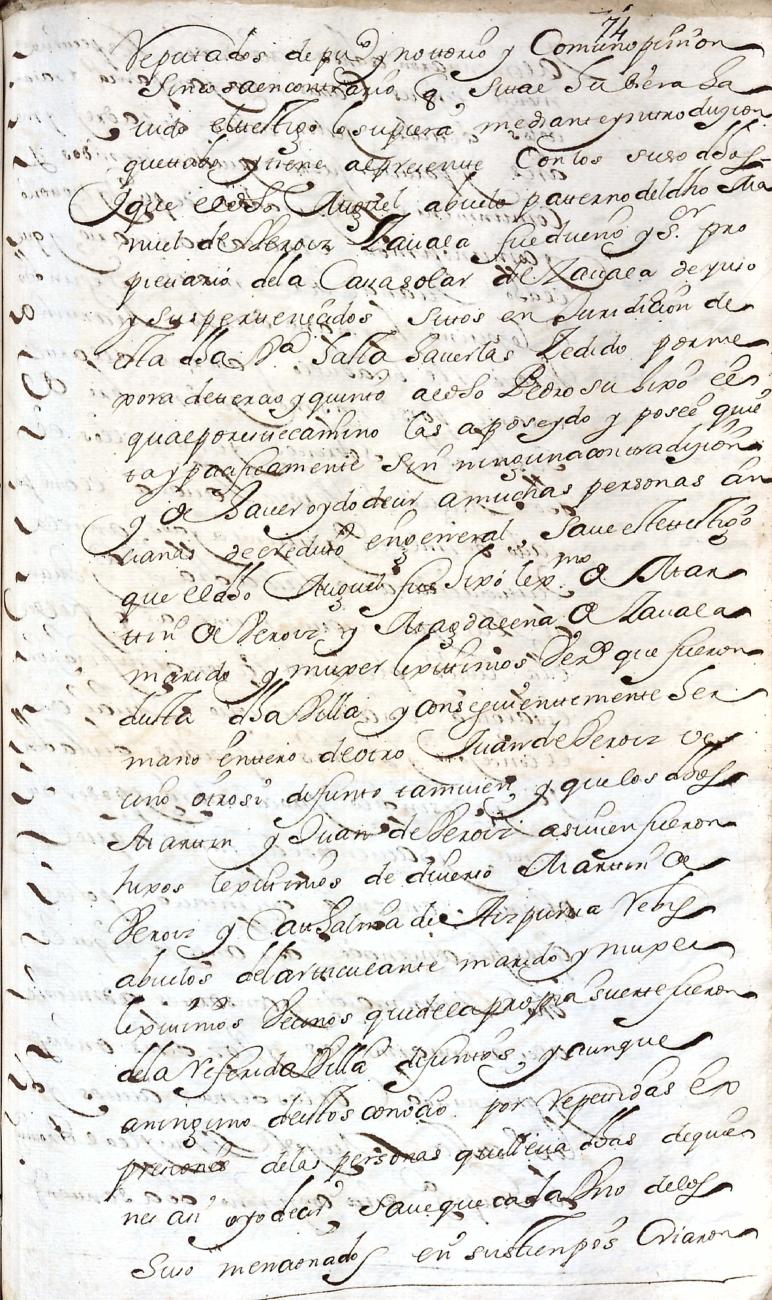 74
Reputados de pu.co y nottorio y Comun opinion
sin cosa en contrario q si tal hubiera ha
uido el testigo lo supiera mediante yntroduzion
que ttubo y tiene al presente Con los suso dhos
y que el dho Miguel abuelo patterno del dho Ma
nuel de Beroiz Zauala fue dueño y s.or pro
pietario de la Casa solar de Zauala de yuso
y sus pertenecidos sitos en Juridicion de
esta dha V.a hasta hauerlas Zedido por me
xora de tercio y quinto a el dho Pedro su hixo el
qual por este camino las a poseydo y posee quie
ta y pacificamente sin ninguna contradizion
y de hauer oydo decir a muchas personas an
cianas de credito en general, saue este testigo
que el dho Miguel fue hixo lex.mo de Mar
ttin de Beroiz y Magdalena de Zauala
marido y muxer lexitimos Vez.s que fueron
desta dha Villa y consequientemente her
mano entero de otro Juan de Beroiz ve
cino otrosi difunto tamuien y que los dhos
Martin y Juan de Beroiz asi uien fueron
hixos lexitimos de Martin de
Beroiz y Catthalina de Aizpurua Vebis
abuelos del articulante marido y muxer
lexitimos Vecinos que de la propia suerte fueron
de la referida Villa difuntos, y aunque
a ninguno de ellos conocio por repetidas ex
presiones de las personas que lleua dhas de quie
nes asi oyo decir saue que cada Uno de los
suso mencionados en sus tienpos Criaron